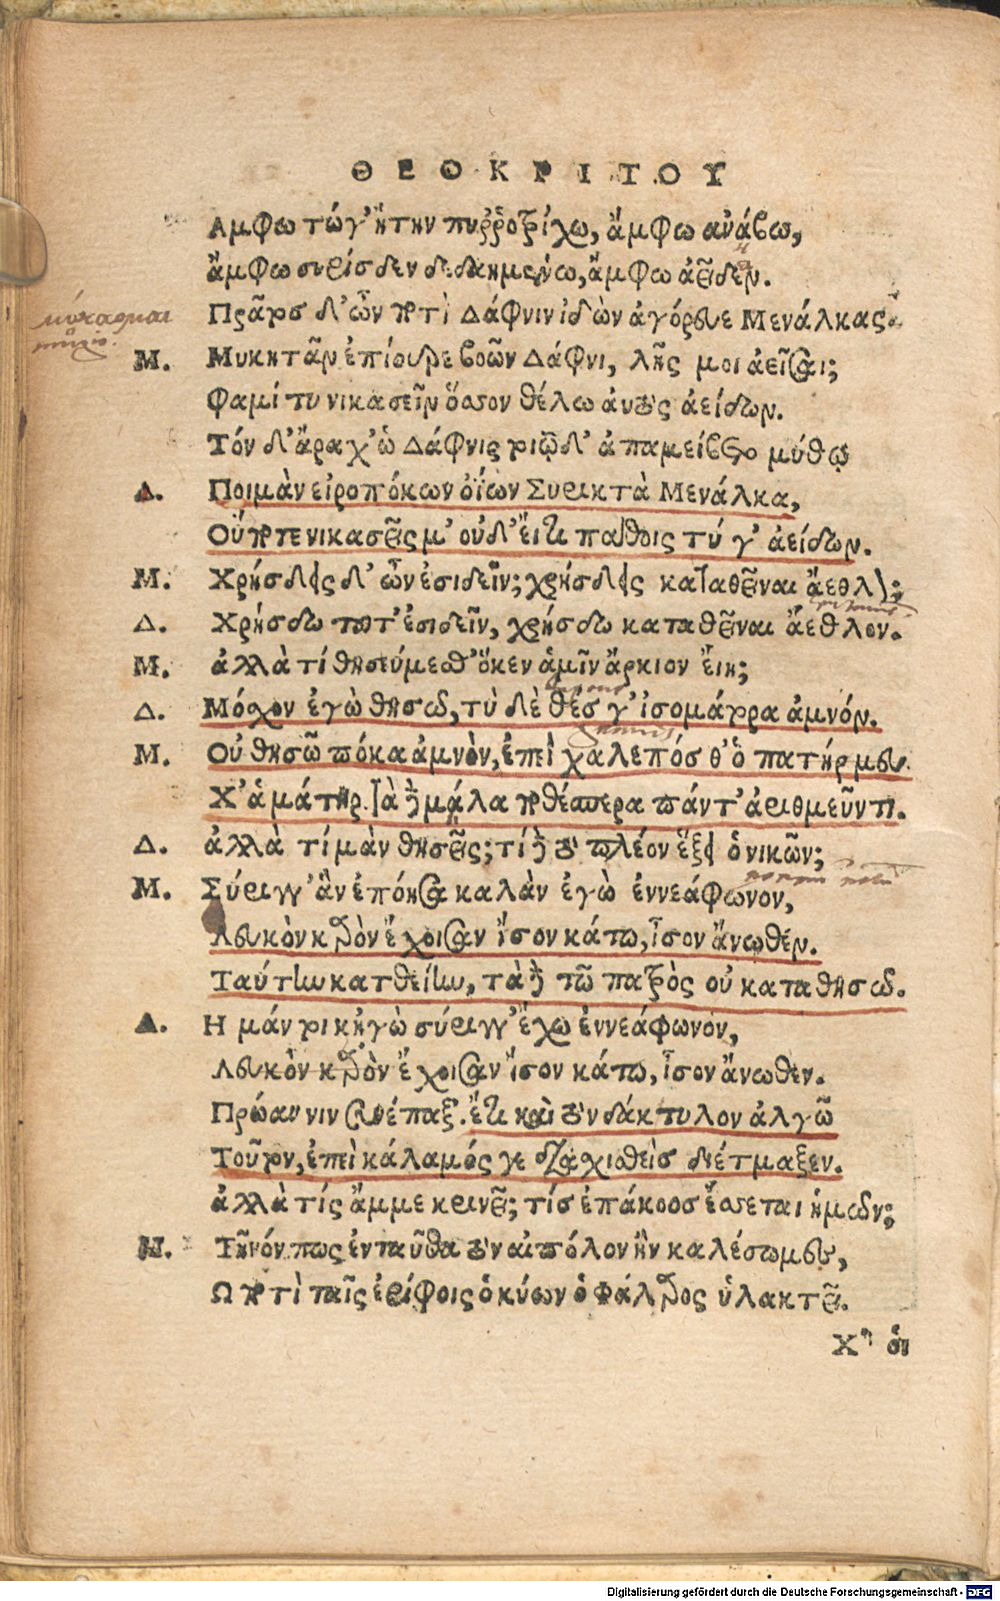 ΘΕΟΚΡΙΤΟΥ
Αμφω τώγ' ἤτην πυῤῥοτρίχω, ἄμφω ἀνάβω,
ἄμφω συρίσδεν δεδαημένω, ἄμφω ἀείδεν.
Πρᾶτος δ' ὦν ποτὶ Δάφνιν ἰδὼν ἀγόρευε Μενάλκας.
μύκαομαι
mugio.
Μ. Μυκητᾶν ἐπίουρε βοῶν Δάφνι, λῇς μοι ἀεῖσαι;
Φαμί τυ νικασεῖν ὅσσον θέλω αὐτὸς ἀείδων.
Τόν δ' ἄρα χ' ὡ Δάφνις τοιῷδ' ἀπαμείβετο μύθῳ
Δ. Ποιμὰν εἰροπόκων ὀΐων Συρικτὰ Μενάλκα,
Οὔποτε νικασεῖς μ' οὐδ' εἴτι πάθοις τύ γ' ἀείδων.
Μ. Χρῄσδεις δ' ὦν ἐσιδεῖν; χρῄσδεις καταθεῖναι ἄεθλον;
Δ. Χρῄσδω τοῦτ' ἐσιδεῖν, χρῄσδω καταθεῖναι ἄεθλον.
Μ. ἀλλὰ τί θησεύμεσθ' ὅκεν ἁμῖν ἄρκιον εἴη;
Δ. Μόσχον ἐγὼ θησῶ, τὺ δὲ θές γ' ἰσομάτορα ἀμνόν.
Μ. Οὐ θησῶ πόκα ἀμνὸν, ἐπεὶ χαλεπός θ' ὁ πατήρ μευ.
Χ' ἁ μάτηρ. τὰ δὲ μᾶλα ποθέσπερα πάντ' ἀριθμεῦντι.
Δ. ἀλλὰ τί μὰν θησεῖς; τί δὲ τὸ πλέον ἕξει ὁ νικῶν;
Μ. Σύριγγ' ἂν ἐπόησα καλὰν ἐγὼ ἐννεάφωνον,
Λευκὸν κηρὸν ἔχοισαν ἴσον κάτω, ἶσον ἄνωθεν.
Ταύταν κατθείην, τὰ δὲ τῶ πατρὸς οὐ καταθησῶ.
Δ. Η μάν τοι κἠγὼ σύριγγ' ἔχω ἐννεάφωνον,
Λευκὸν κηρὸν ἔχοισαν ἴσον κάτω, ἶσον ἄνωθεν.
Πρώαν νιν συνέπαξ'. ἔτι καὶ τὸν δάκτυλον ἀλγῶ
Τοῦτον, ἐπεὶ κάλαμός γε διασχισθεὶς διέτμαξεν.
ἀλλὰ τίς ἄμμε κρινεῖ; τίς ἐπάκοος ἔσσεται ἡμῶν;
Μ. Τῆνόν πως ἐνταῦθα τὸν αἰπόλον ἢν καλέσωμεν,
Ω ποτὶ ταῖς ἐρίφοις ὁ κύων ὁ φάλαρος ὑλακτεῖ.
Χ' οἱ
Digitalisierung gefördert durch die Deutsche Forschungsgemeinschaft - DFG